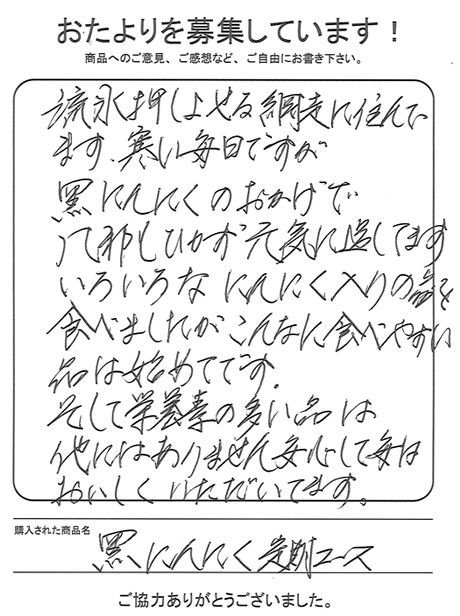 おたよりを募集しています！
商品へのご意見、ご感想など、ご自由にお書き下さい。
流氷押しよせる網走に住んで
ます。寒い毎日ですが
黒にんにくのおかげで
風邪もひかず元気に過してます
いろいろなにんにく入りの品を
食べましたがこんなに食べやすい
品は始めてです。
そして栄養素の多い品は
他にはありません安心して毎日
おいしくいただいてます。
購入された商品名
黒にんにく定期コース
ご協力ありがとうございました。